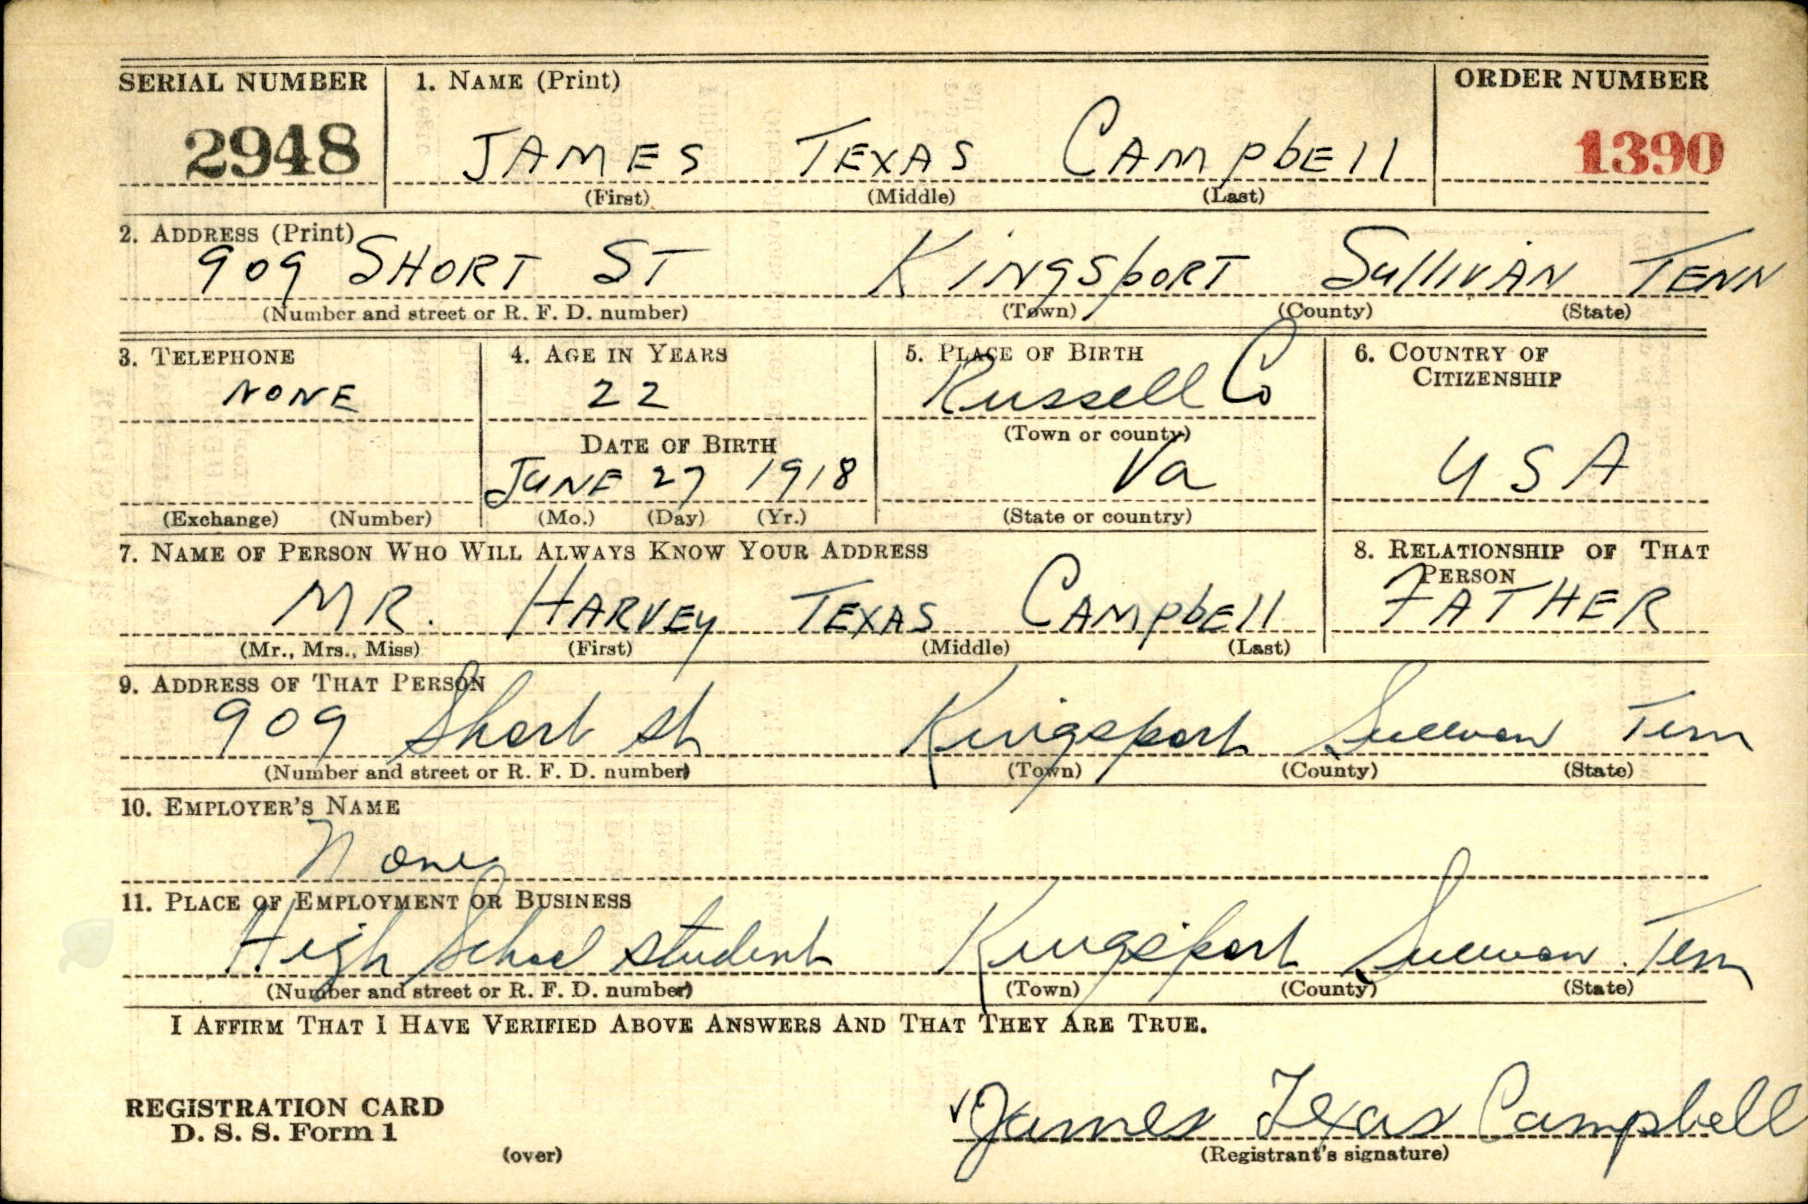 SERIAL NUMBER 1. NAME (Print) ORDER NUMBER
2948 JAMES TEXAS CAMPbEll 1390
(First) (Middle) (Last)
2. ADDRESS (Print)
909 SHORT ST KINgSpORT SullIVAN TENN
(Number and street or R. F. D. number) (Town) (County) (State)
3. TELEPHONE 4. AGE IN YEARS 5. PLACE OF BIRTH 6. COUNTRY OF CITIZENSHIP
NONE 22 Russell Co
(Town or county)
DATE OF BIRTH
JUNE 27 1918 Va USA
(Exchange) (Number) (Mo.) (Day) (Yr.) (State or country)
7. NAME OF PERSON WHO WILL ALWAYS KNOW YOUR ADDRESS 8. RELATIONSHIP OF THAT PERSON
MR. HARVEy TEXAS CAMPbEll FATHER
(Mr., Mrs., Miss) (First) (Middle) (Last)
9. ADDRESS OF THAT PERSON
909 Short St Kingsport Sullivan Tenn
(Number and street or R. F. D. number) (Town) (County) (State)
10. EMPLOYER'S NAME
None
11. PLACE OF EMPLOYMENT OR BUSINESS
High School student Kingsport Sullivan. Tenn
(Number and street or R. F. D. number) (Town) (County) (State)
I AFFIRM THAT I HAVE VERIFIED ABOVE ANSWERS AND THAT THEY ARE TRUE.
REGISTRATION CARD
D. S. S. Form 1
(over)
James Texas Campbell
(Registrant's signature)